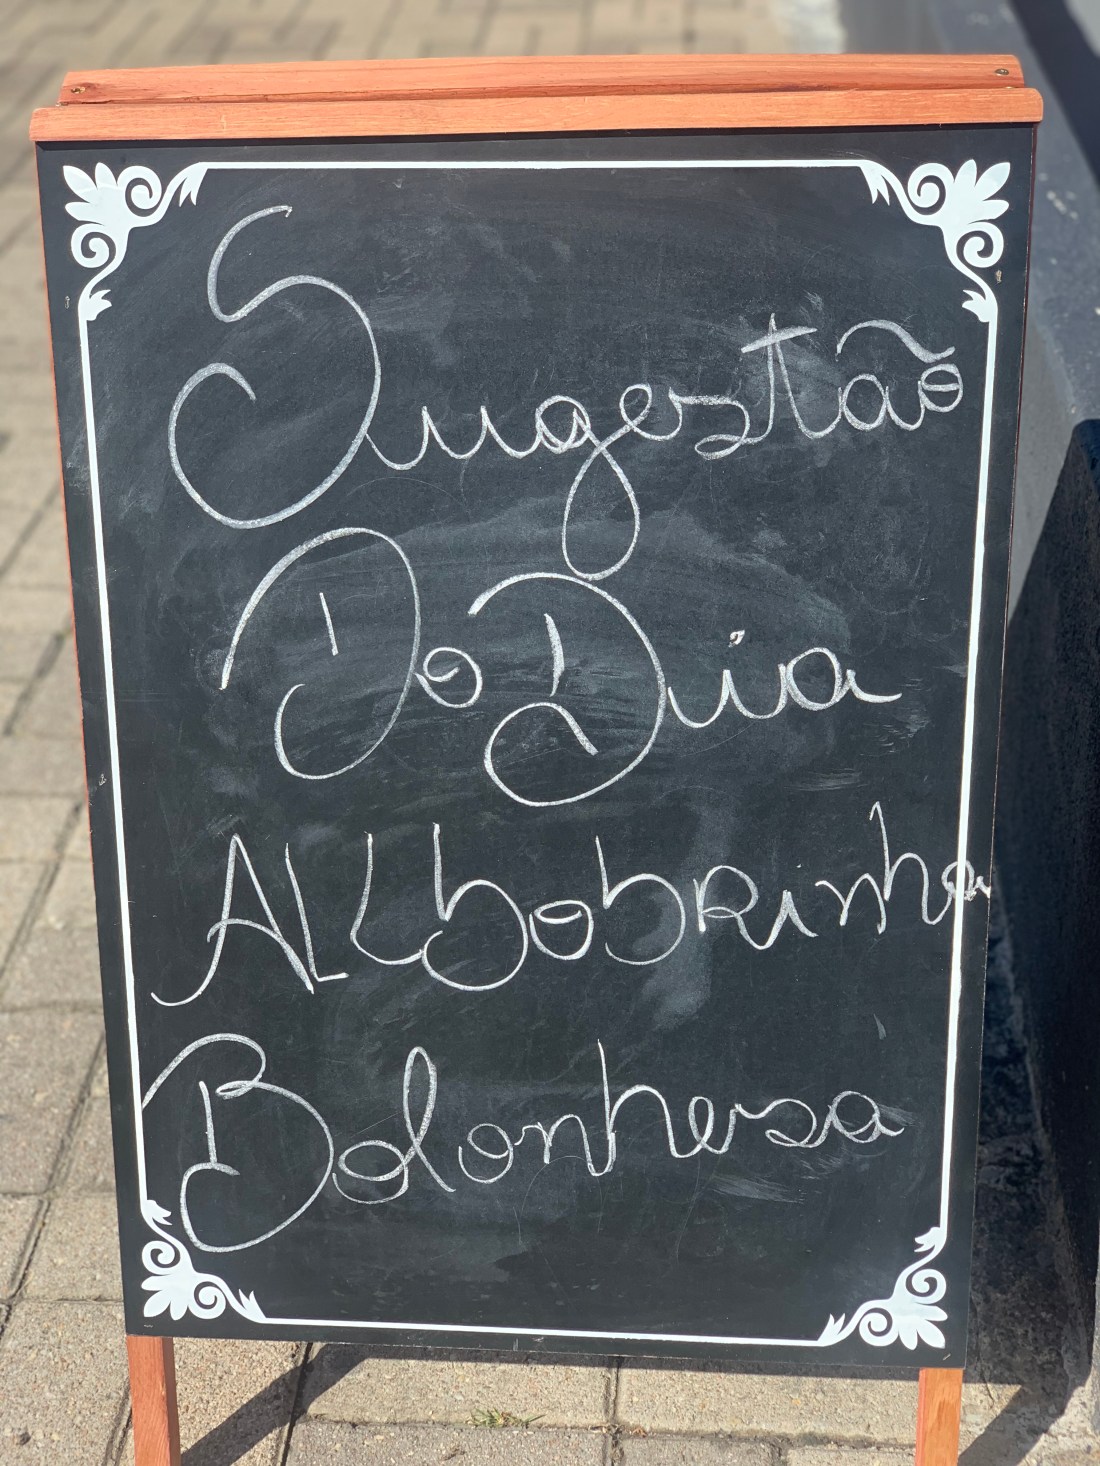 Sugestão
Do Dia
ALLbobRinha
Bolonhesa